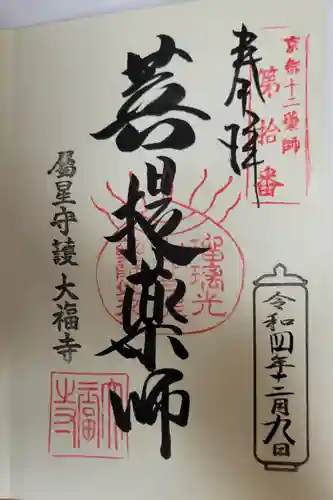 京都十二薬師
第拾番
奉拝
菩提薬師
瑠璃光
属星守護 大福寺
大福寺
令和四年十二月九日